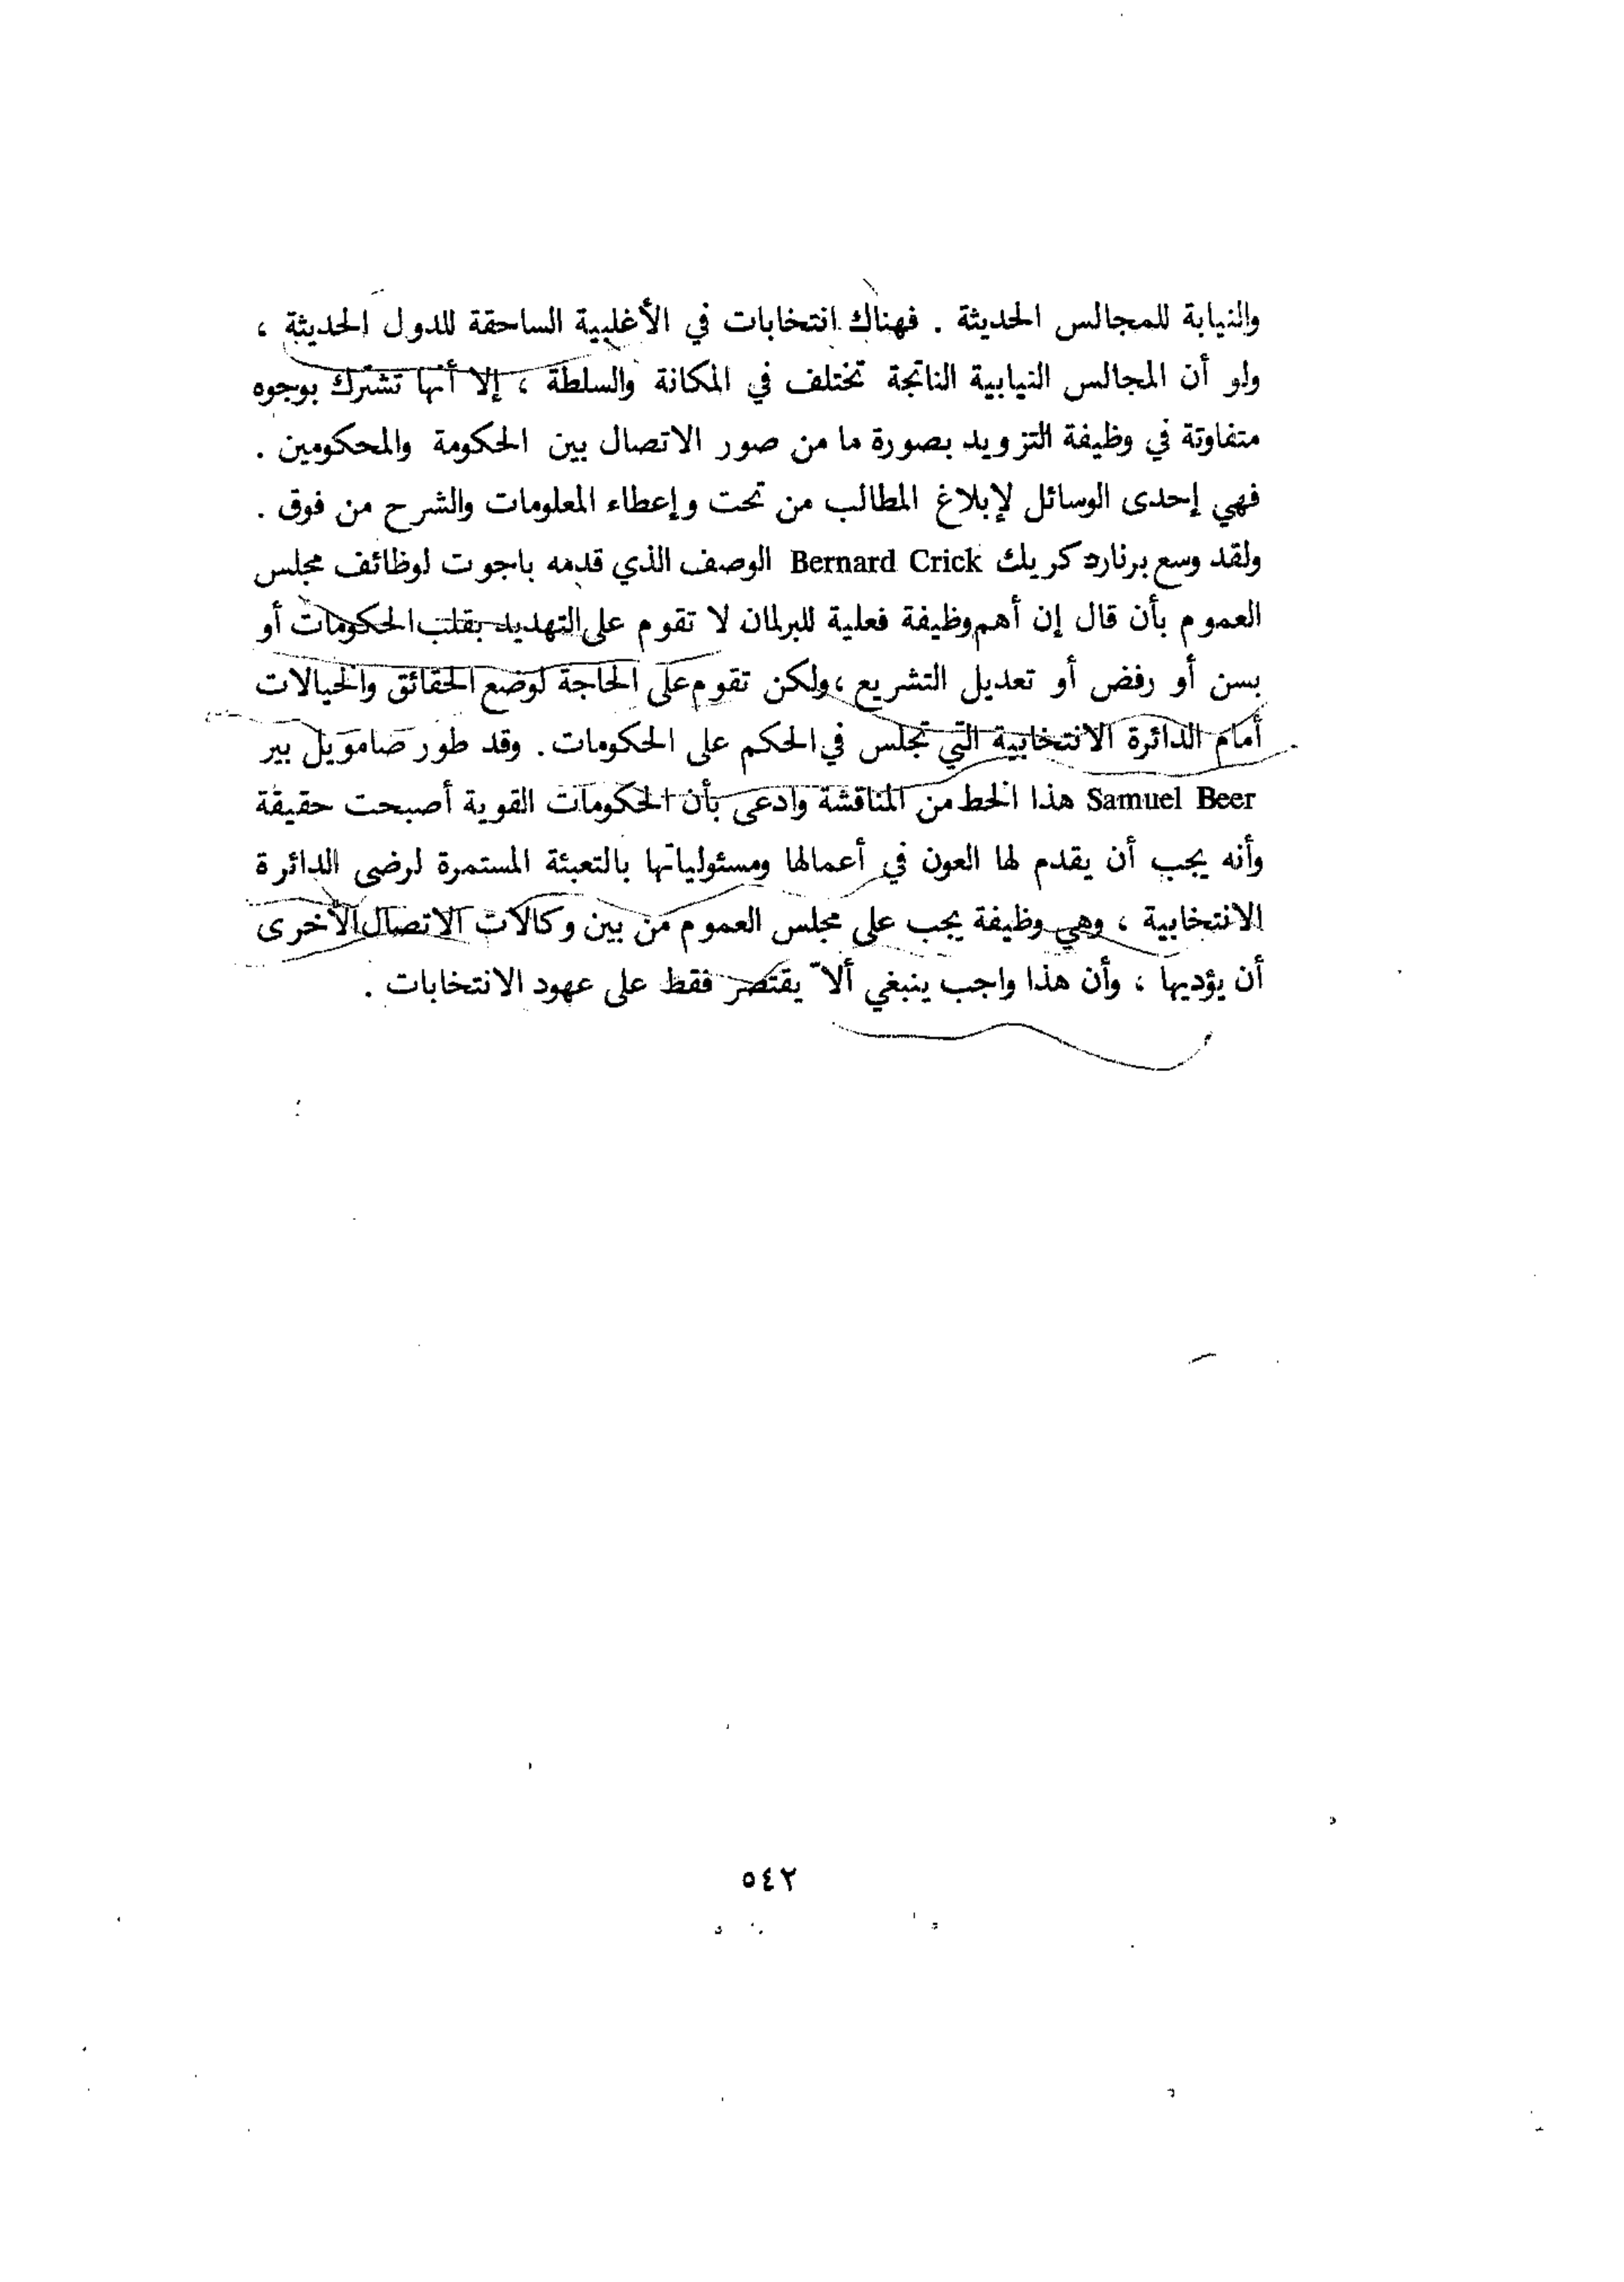 والنيابة للمجالس الحديثة . فهناك انتخابات في الأغلبية الساحقة للدول الحديثة ،
ولو أن المجالس النيابية الناتجة تختلف في المكانة والسلطة ، إلا أنها تشترك بوجوه
متفاوتة في وظيفة التزويد بصورة ما من صور الاتصال بين الحكومة والمحكومين .
فهي إحدى الوسائل لإبلاغ المطالب من تحت وإعطاء المعلومات والشرح من فوق .
ولقد وسع برنارد كريك Bernard Crick الوصف الذي قدمه باجوت لوظائف مجلس
العموم بأن قال إن أهم وظيفة فعلية للبرلمان لا تقوم على التهديد بقلب الحكومات أو
بسن أو رفض أو تعديل التشريع ، ولكن تقوم على الحاجة لوضع الحقائق والخيالات
أمام الدائرة الانتخابية التي تجلس في الحكم على الحكومات . وقد طور صامويل بير
Samuel Beer هذا الخط من المناقشة وادعى بأن الحكومات القوية أصبحت حقيقة
وأنه يجب أن يقدم لها العون في أعمالها ومسئولياتها بالتعبئة المستمرة لرضى الدائرة
الانتخابية ، وهي وظيفة يجب على مجلس العموم من بين وكالات الاتصال الأخرى
أن يؤديها ، وأن هذا واجب ينبغي ألاّ يقتصر فقط على عهود الانتخابات .
٥٤٢